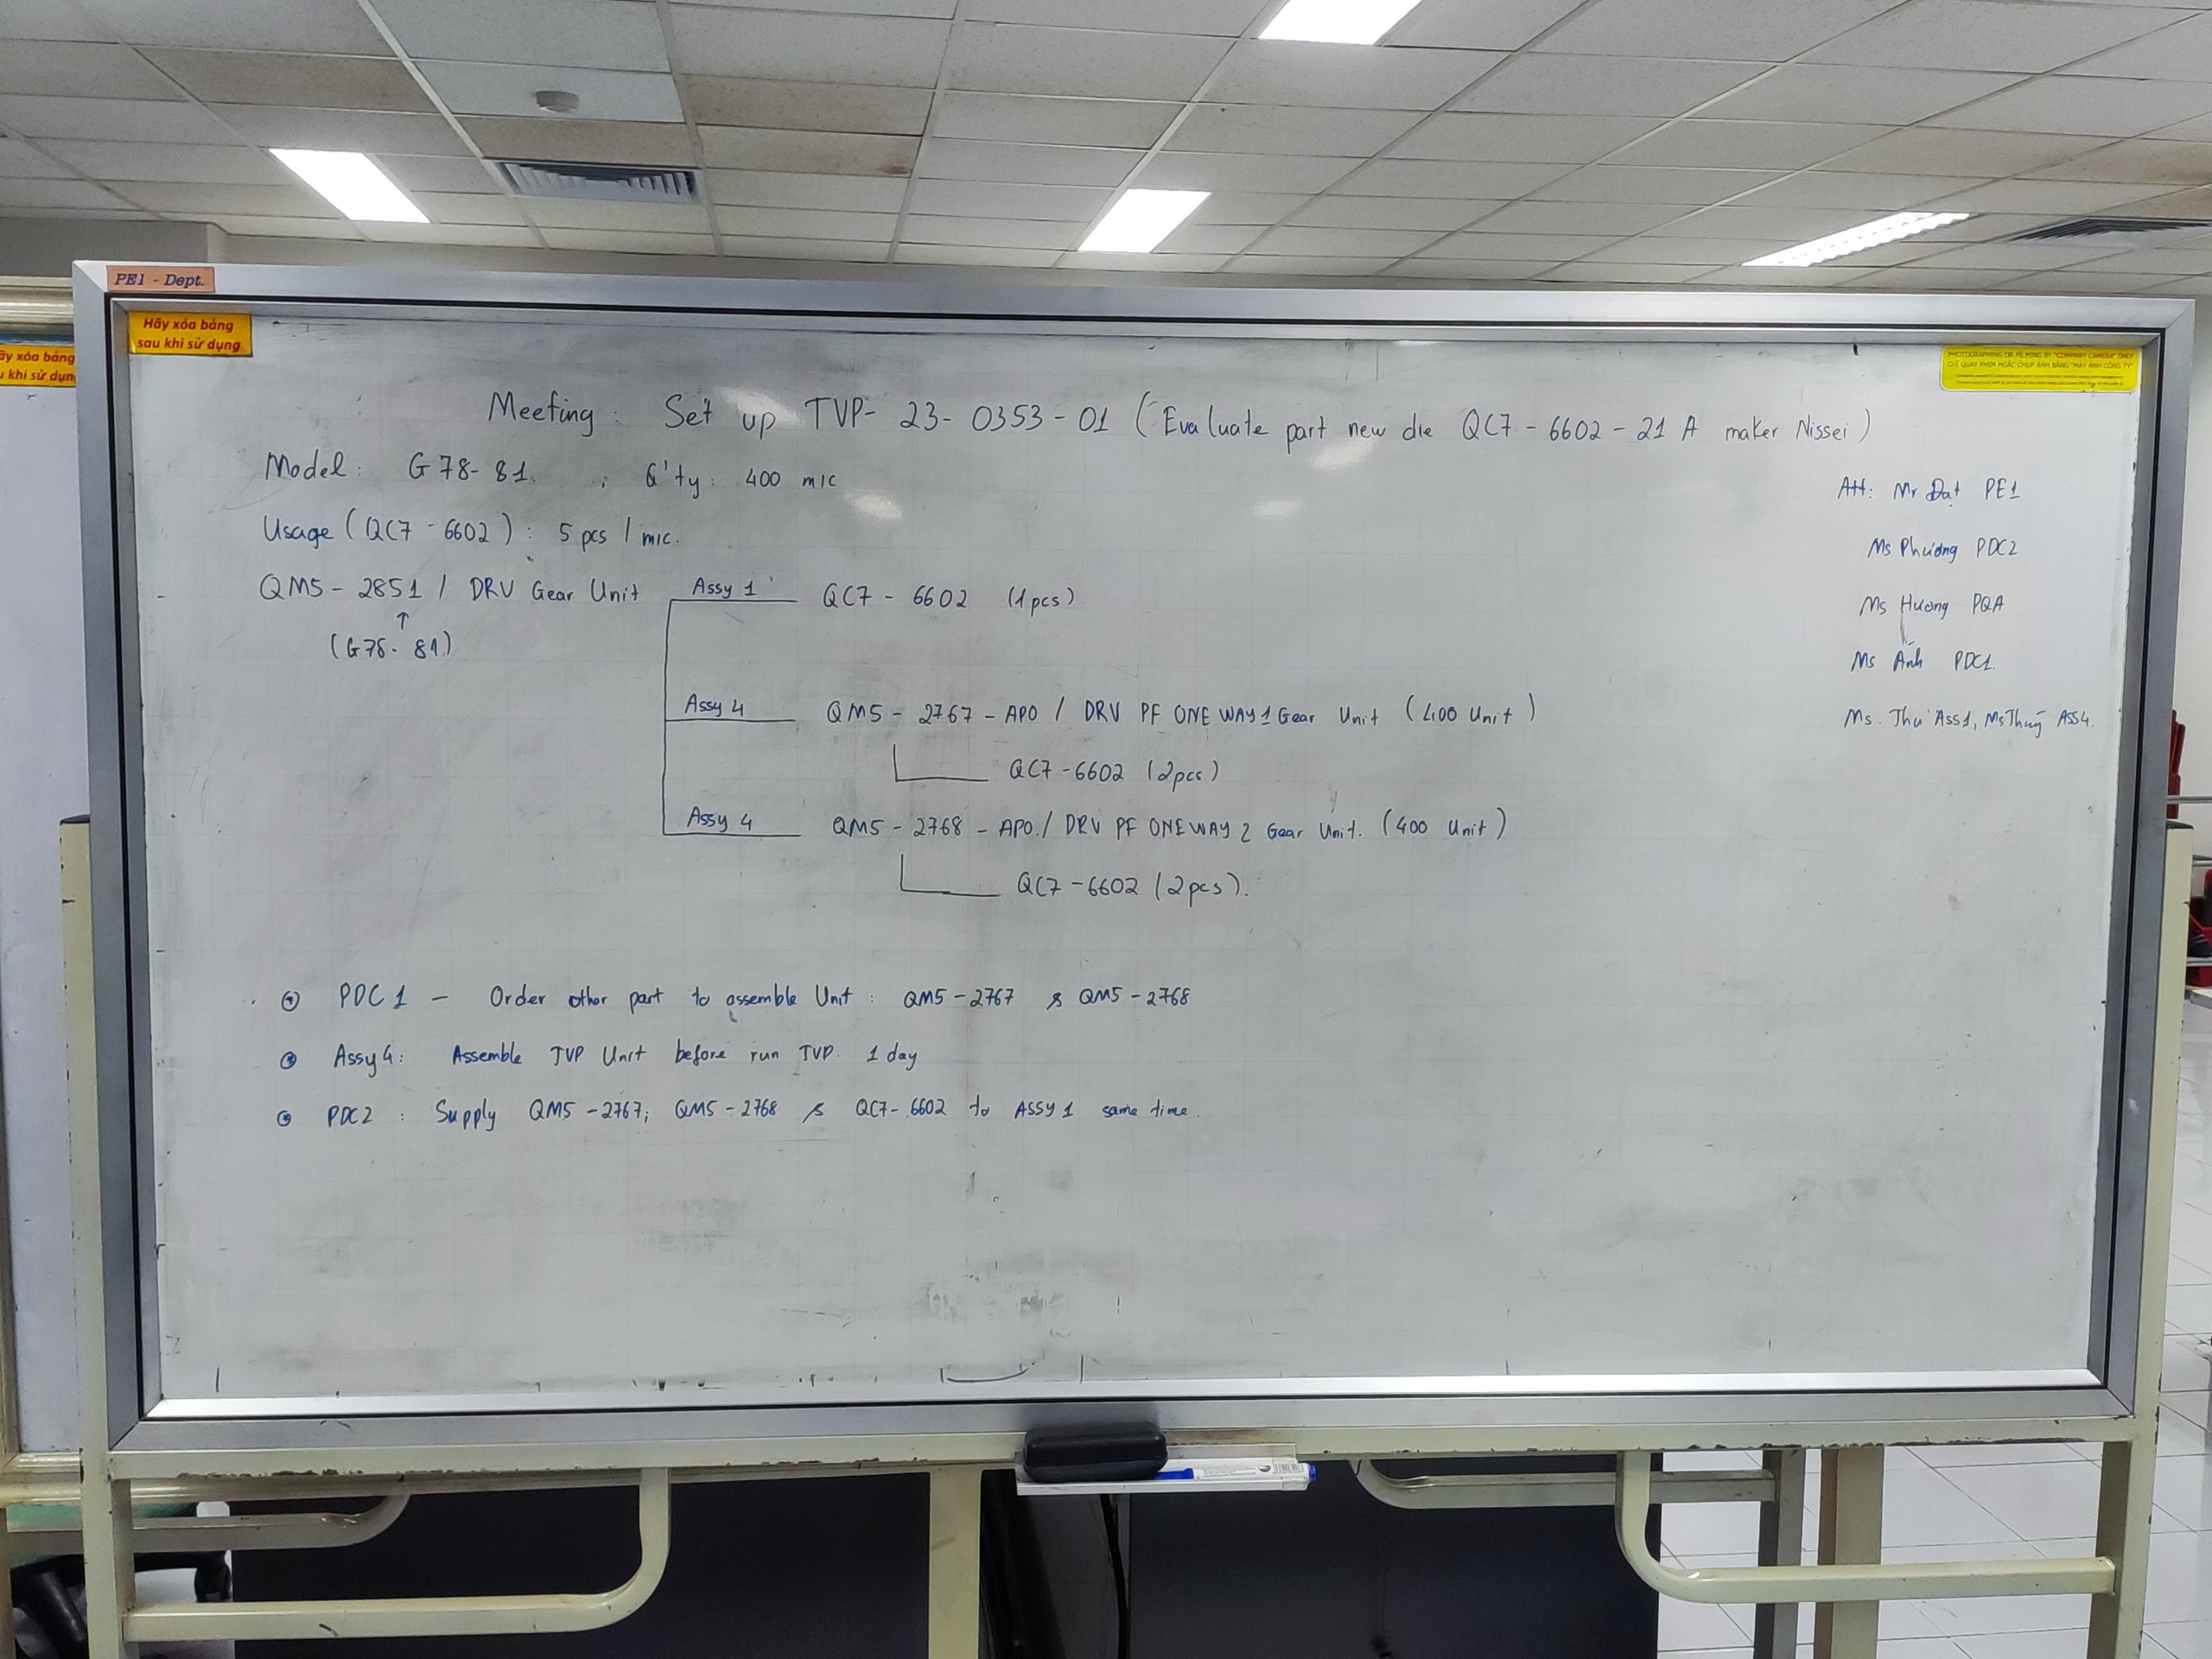 PE1 - Dept.
Hãy xóa bảng
sau khi sử dụng
ãy xóa bảng
u khi sử dụn
PHOTOGRAPHING OR FILMING BY "COMPANY CAMERA" ONLY
CHỈ QUAY PHIM HOẶC CHỤP ẢNH BẰNG "MÁY ẢNH CÔNG TY"
Meeting: Set up TVP- 23- 0353-01 (Evaluate part new die QC7-6602-21 A maker Nissei)
Model: G78-81. ; Q'ty: 400 m/c
Usage (QC7-6602): 5 pcs / m/c.
QM5-2851 / DRV Gear Unit
(G78-81)
Assy 1 QC7-6602 (1pcs)
Assy 4 QM5-2767-APO / DRV PF ONE WAY 1 Gear Unit (400 Unit)
QC7-6602 (2pcs)
Assy 4 QM5-2768-APO / DRV PF ONE WAY 2 Gear Unit. (400 Unit)
QC7-6602 (2pcs).
Att: Mr Đạt PE1
Ms Phương PDC2
Ms Hương PQA
Ms Ánh PDC1.
Ms. Thư Ass1, Ms Thuỷ ASS4.
① PDC1 - Order other part to assemble Unit: QM5-2767 & QM5-2768
② Assy4: Assemble TVP Unit before run TVP 1 day
③ PDC2: Supply QM5-2767; QM5-2768 & QC7-6602 to ASSY1 same time.